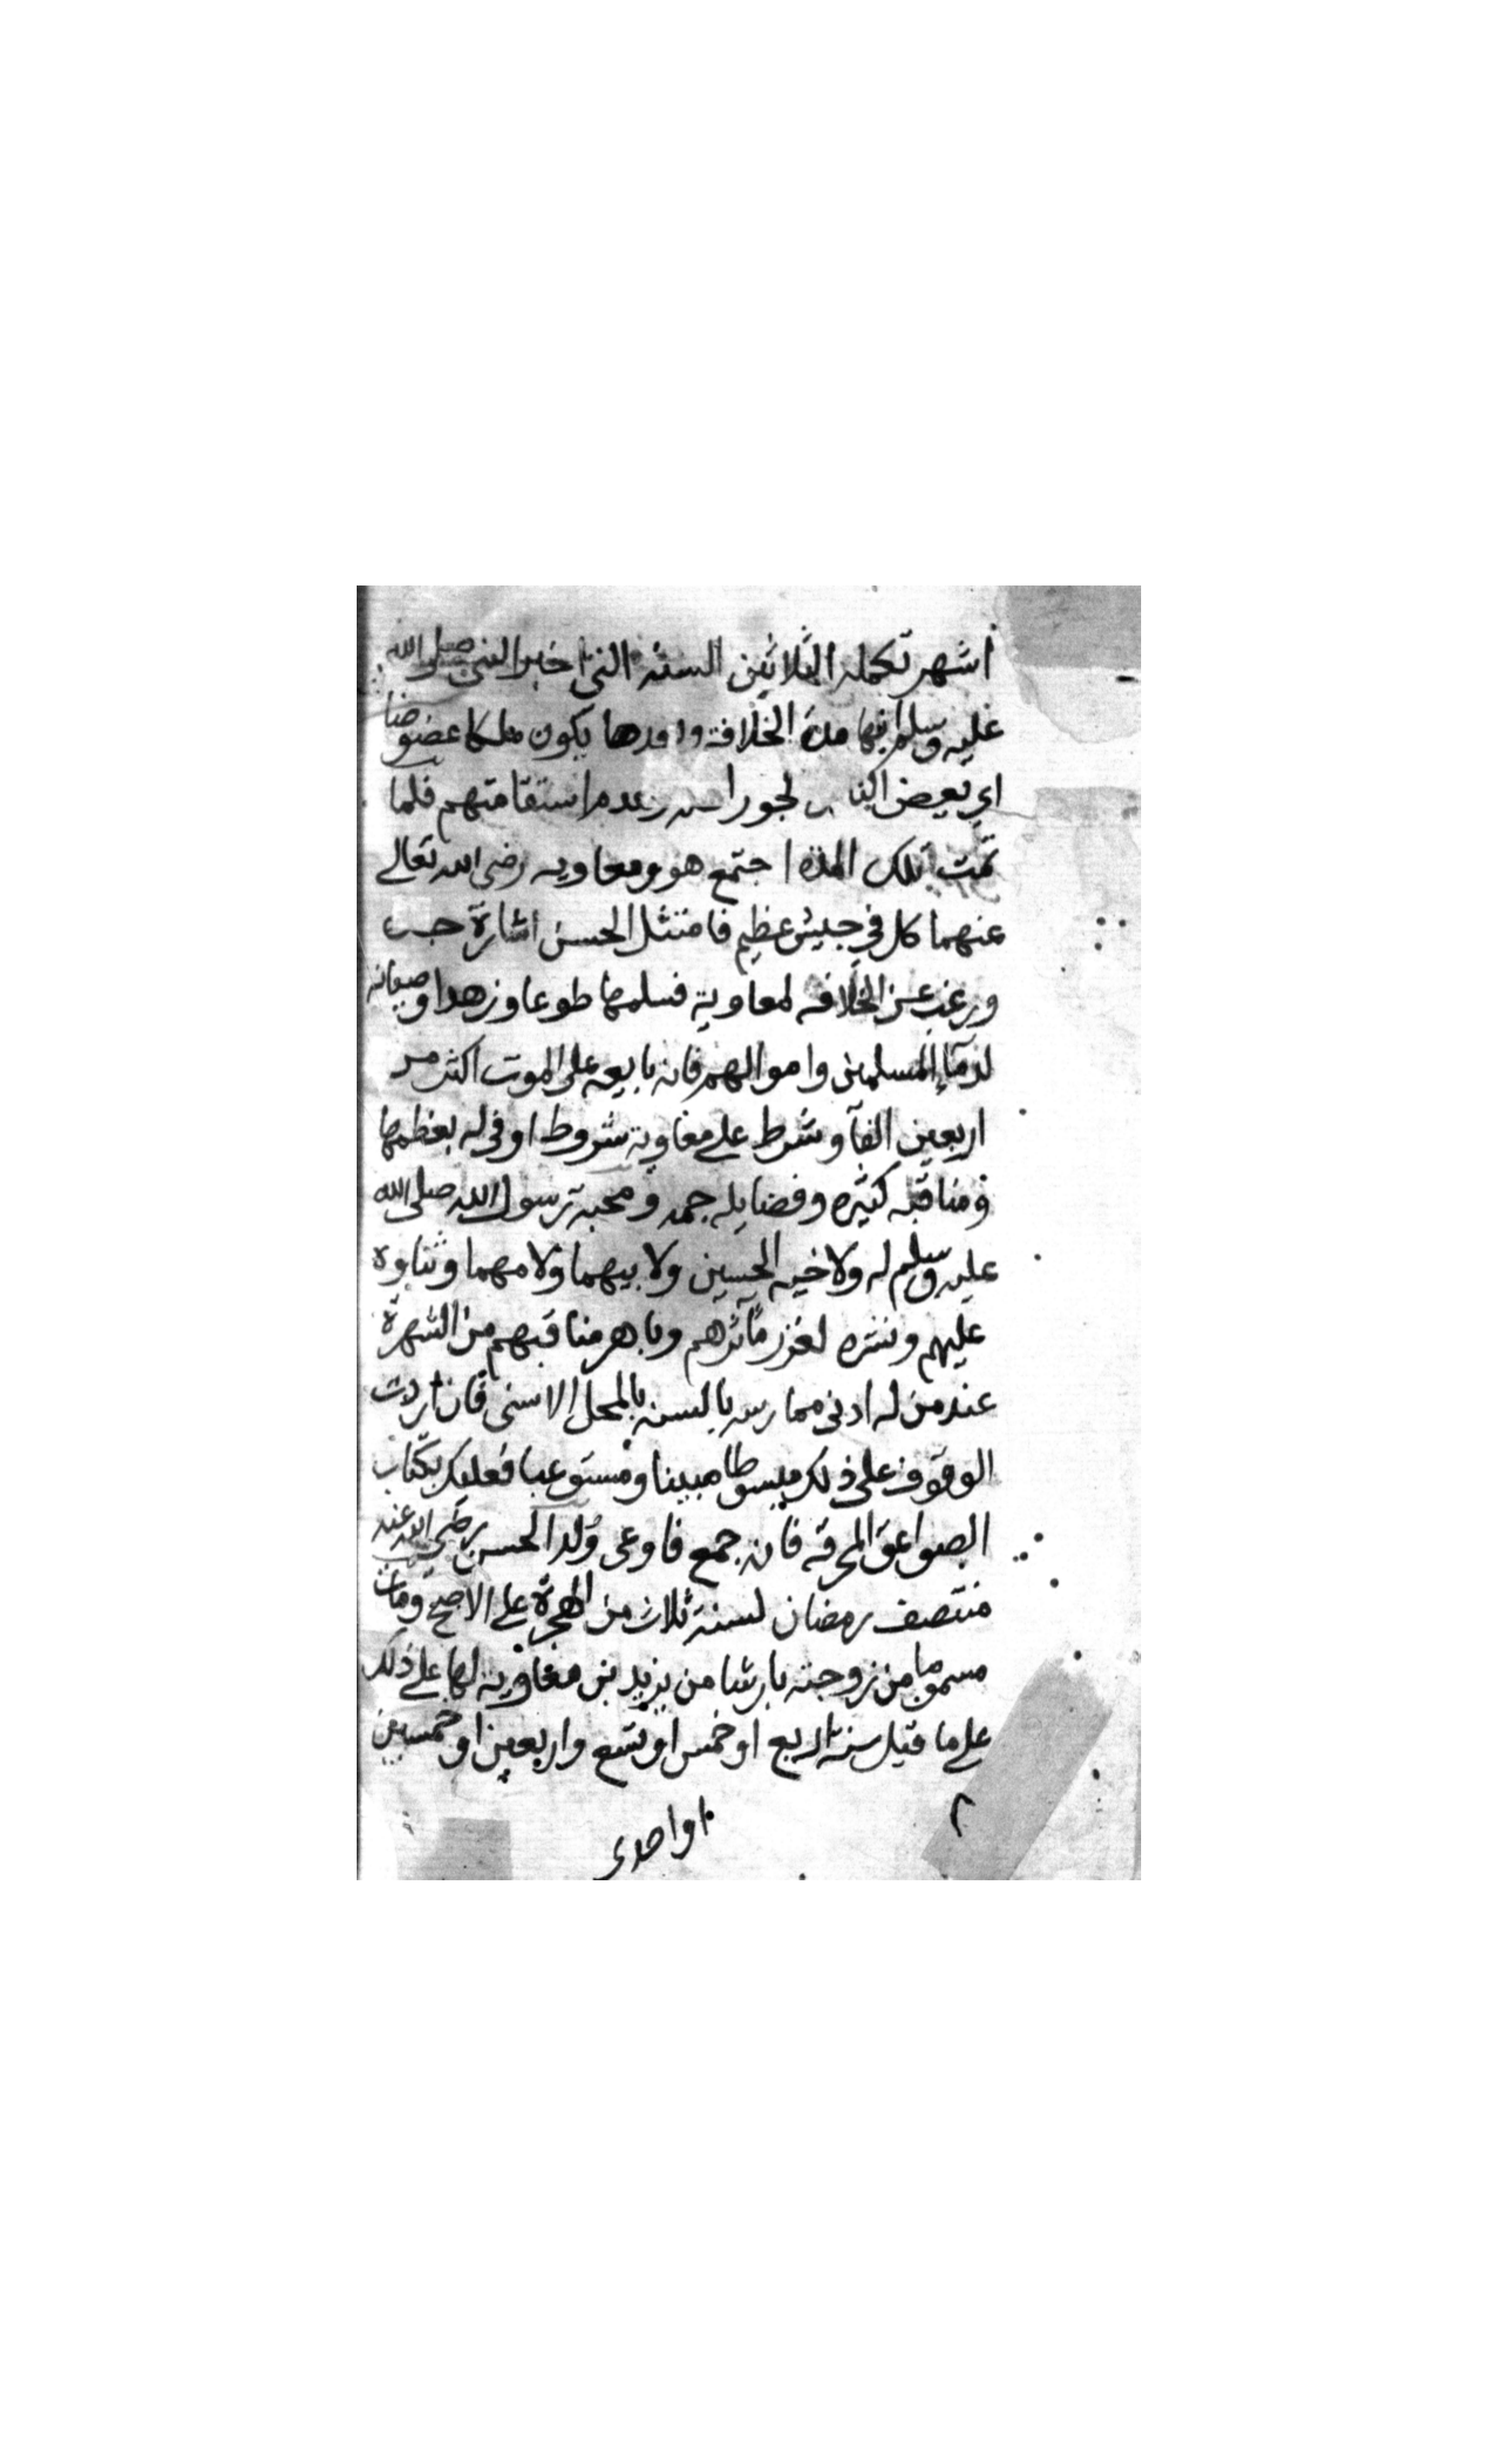 اشهر تكمله الثلاثين السنه التي اخبر النبي صلى الله
عليه وسلم انها مدة الخلافة وبعدها يكون ملكا عضوضا
اي يعض الناس لجور وعدم استقامتهم فلما
تمت تلك المدة اجتمع هو ومعاويه رضي الله تعالى
عنهما كل في جيش عظيم فامتثل الحسن اشارة جده
ورغب عن الخلافه لمعاوية فسلمها طوعا وزهدا وصيانه
لدماء المسلمين واموالهم فانه بايعه على الموت اكثر من
اربعين الفا وشرط على معاوية شروط اوفى له بعظمها
ومناقبه كثيره وفضايله جمه ومحبة رسول الله صلى الله
عليه وسلم له ولاخيه الحسين ولابيهما ولامهما وثناوه
عليهم ونشره لغرر مآثرهم وباهر مناقبهم من الشهرة
عند من له ادنى ممارسه بالسنه بالمحل الاسنى فان اردت
الوقوف على ذلك مبسوطا مبينا ومستوعبا فعليك بكتاب
الصواعق المحرقه فانه جمع فاوعى ولد الحسن رضي الله عنه
منتصف رمضان لسنة ثلاث من الهجرة على الاصح ومات
مسموما من زوجته بارشا من يزيد بن معاوية لها على ذلك
على ما قيل سنة اربع او خمس او تسع واربعين او خمسين
٢
او احدى